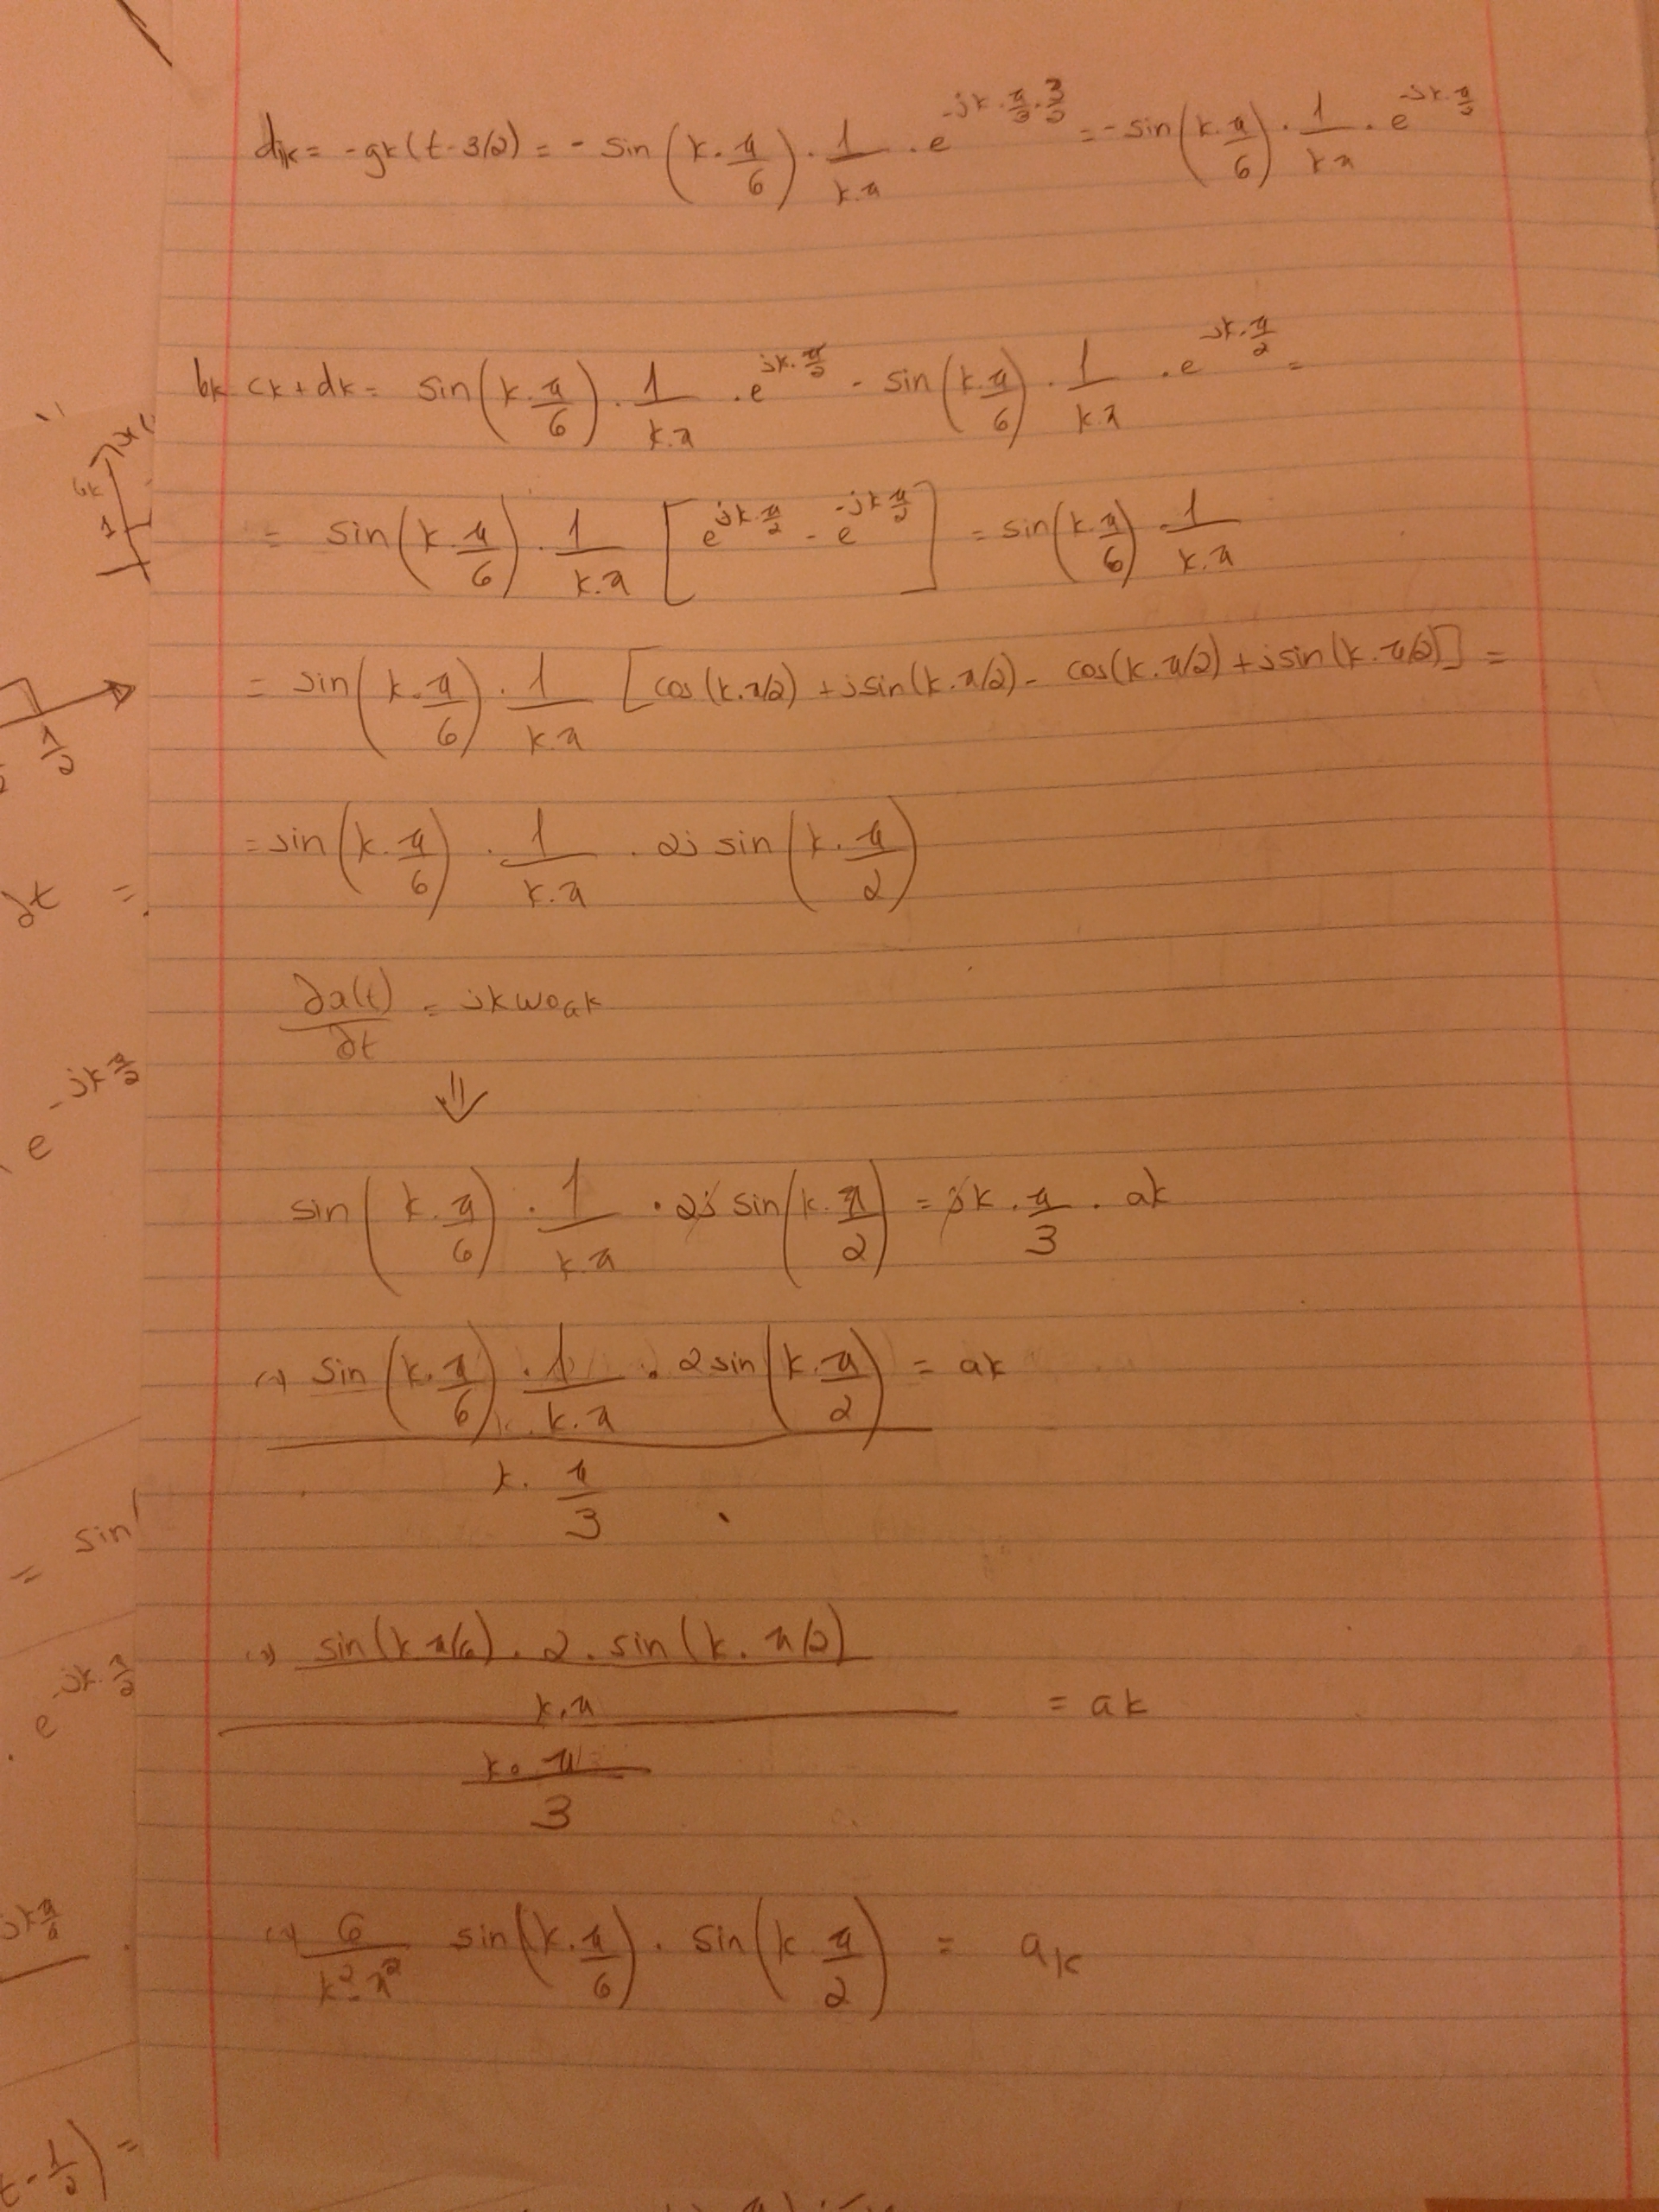 dk = -gk(t-3/2) = - sin(k·π/6) · 1/(k·π) · e^(-jk·π/3·3/2) = - sin(k·π/6) · 1/(kπ) · e^(-jk·π/2)
bk = ck + dk = sin(k·π/6) · 1/(k·π) · e^(jk·π/2) - sin(k·π/6) · 1/(k·π) · e^(-jk·π/2) =
= sin(k·π/6) · 1/(k·π) [e^(jk·π/2) - e^(-jk π/2)] = sin(k·π/6) · 1/(k·π)
= sin(k·π/6) · 1/(k·π) [cos(k·π/2) + jsin(k·π/2) - cos(k·π/2) + jsin(k·π/2)] =
= sin(k·π/6) · 1/(k·π) · 2j sin(k·π/2)
∂x(t)/∂t = jkω0ak
⇓
sin(k·π/6) · 1/(k·π) · 2j sin(k·π/2) = jk·π/3 · ak
(=) (sin(k·π/6) · 1/(k·π) · 2sin(k·π/2)) / (k·π/3) = ak
(=) ((sin(k π/6) · 2 · sin(k·π/2)) / (k·π)) / (k·π/3) = ak
(=) 6/(k²·π²) sin(k·π/6) · sin(k π/2) = ak
1/2
∂t =
e^(-jk π/2)
= sin
· e^(-jk·π/2)
t - 1/2) =